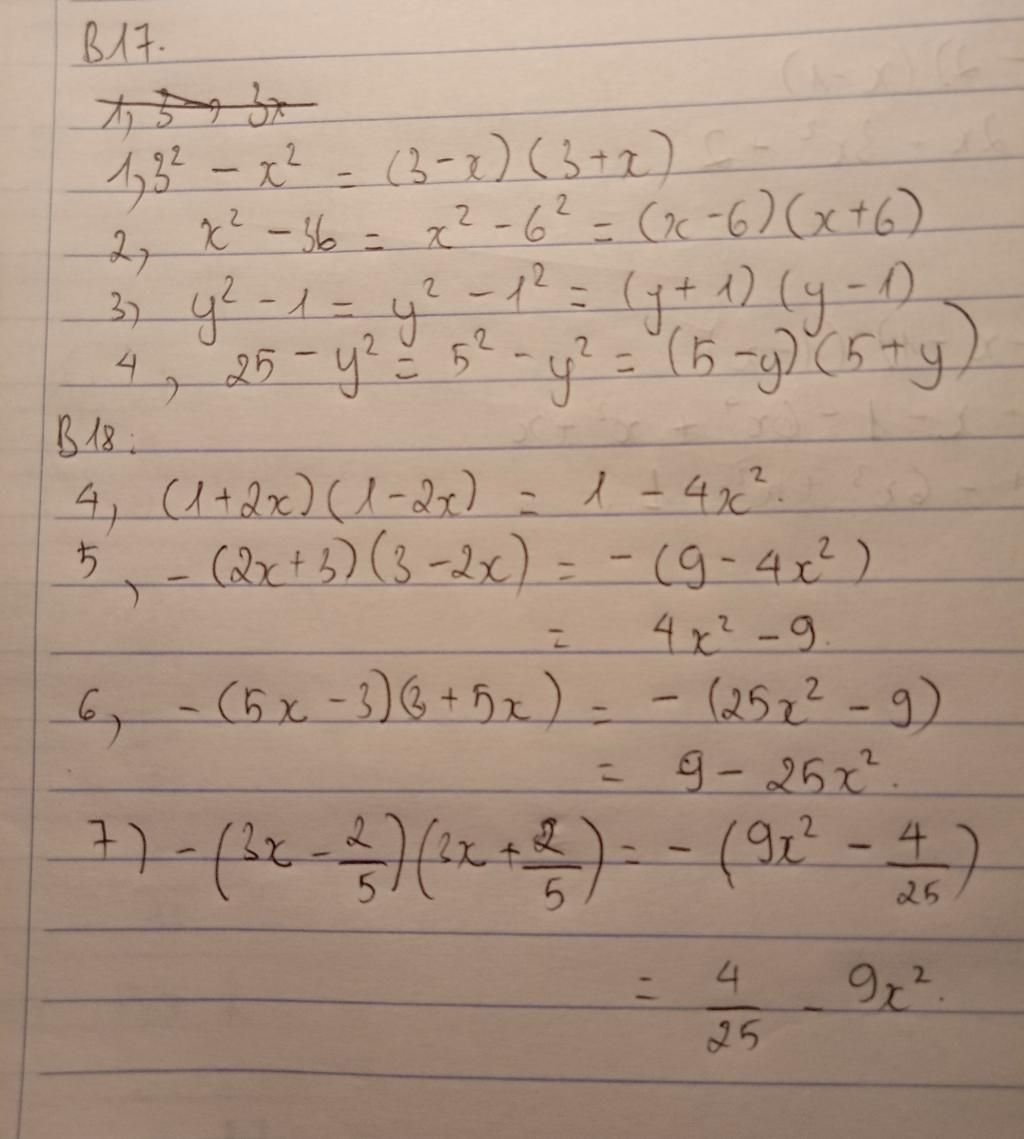 B17.
1, 3² - x² = (3-x)(3+x)
2, x² - 36 = x² - 6² = (x-6)(x+6)
3, y² - 1 = y² - 1² = (y+1)(y-1)
4, 25 - y² = 5² - y² = (5-y)(5+y)
B18:
4, (1+2x)(1-2x) = 1 - 4x².
5, -(2x+3)(3-2x) = -(9-4x²)
= 4x² - 9.
6, -(5x-3)(3+5x) = -(25x² - 9)
= 9 - 25x².
7) -(3x - 2/5)(3x + 2/5) = -(9x² - 4/25)
= 4/25 - 9x².